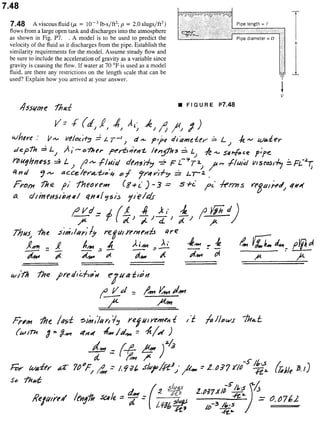 7.48
7.48 A viscous fluid (μ = 10⁻³ lb·s/ft²; ρ = 2.0 slugs/ft³)
flows from a large open tank and discharges into the atmosphere
as shown in Fig. P7. A model is to be used to predict the
velocity of the fluid as it discharges from the pipe. Establish the
similarity requirements for the model. Assume steady flow and
be sure to include the acceleration of gravity as a variable since
gravity is causing the flow. If water at 70 °F is used as a model
fluid, are there any restrictions on the length scale that can be
used? Explain how you arrived at your answer.
Pipe length = ℓ
Pipe diameter = D
V
■ FIGURE P7.48
Assume that
V = f (d, ℓ, h, λi, k, ρ, μ, g)
where: V ~ velocity ≐ LT⁻¹, d ~ pipe diameter ≐ L, h ~ water
depth ≐ L, λi ~ other pertinent lengths ≐ L, k ~ surface pipe
roughness ≐ L, ρ ~ fluid density ≐ FL⁻⁴T², μ ~ fluid viscosity ≐ FL⁻²T,
and g ~ acceleration of gravity ≐ LT⁻².
From the pi theorem (8+i)-3 = 5+i pi terms required, and
a dimensional analysis yields
ρVd/μ = φ (ℓ/d, h/d, λi/d, k/d, ρ√gh d/μ)
Thus, the similarity requirements are
ℓm/dm = ℓ/d hm/dm = h/d λim/dm = λi/d km/dm = k/d ρm√gm hm dm/μm = ρ√gh d/μ
with the prediction equation
ρVd/μ = ρm Vm dm/μm
From the last similarity requirement it follows that
(with g = gm and hm/dm = h/d)
dm/d = (ρ/ρm μm/μ)^2/3
For water at 70°F, ρm = 1.936 slugs/ft³; μm = 2.037 x10⁻⁵ lb·s/ft² (Table B.1)
so that
Required length scale = dm/d = (2 slugs/ft³ / 1.936 slugs/ft³ 2.037x10⁻⁵ lb·s/ft² / 10⁻³ lb·s/ft²)^2/3 = 0.0762